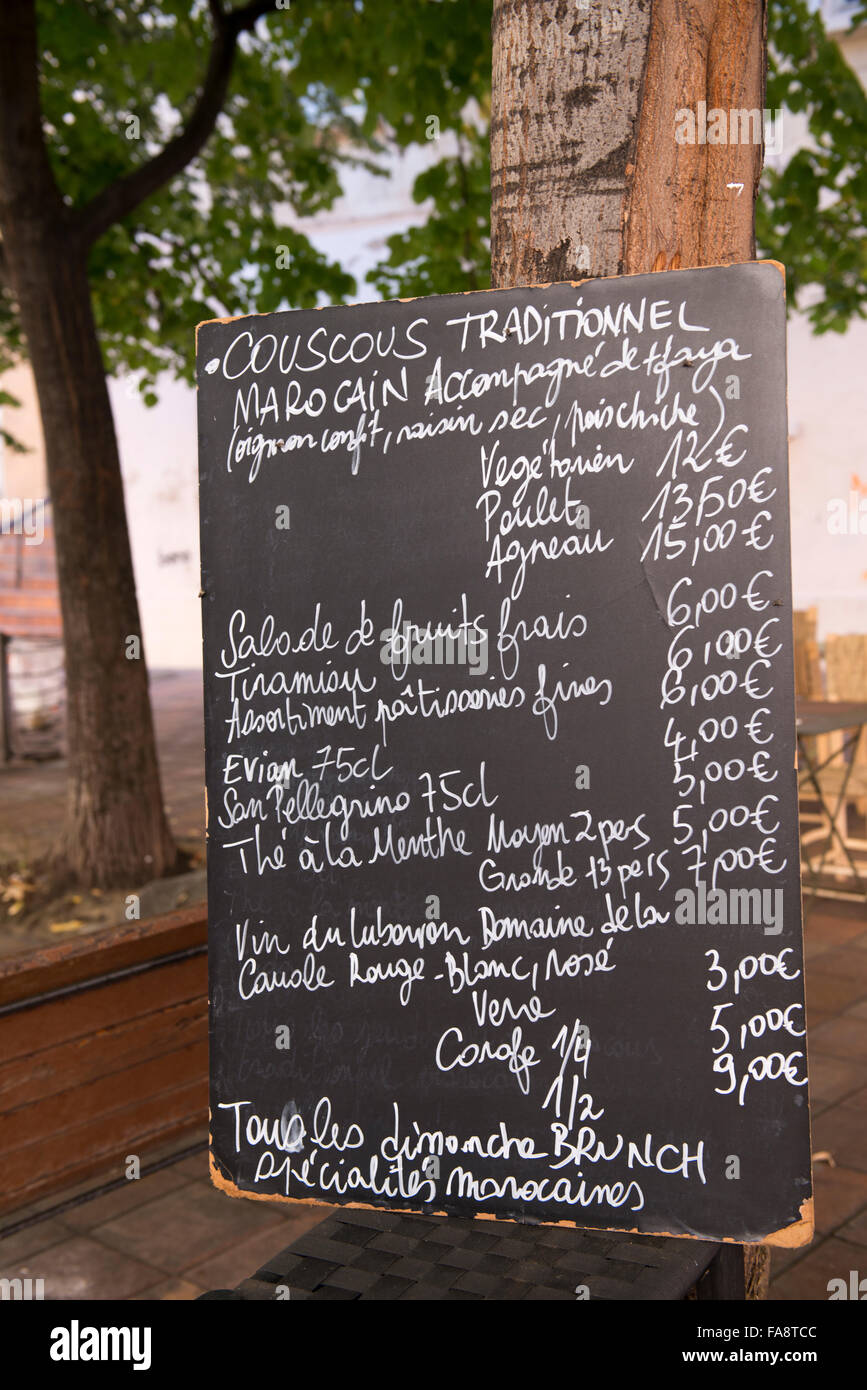 • COUSCOUS TRADITIONNEL
MAROCAIN Accompagné de tfaya
(oignon confit, raisin sec, pois chiche)
Vegétarien 12€
Poulet 13,50€
Agneau 15,00€
Salade de fruits frais 6,00€
Tiramisu 6,00€
Assortiment patîsseries fines 6,00€
Evian 75cl 4,00€
San Pellegrino 75cl 5,00€
Thé à la Menthe Moyen 2 pers 5,00€
Grande +3 pers 7,00€
Vin du luberon Domaine de la
Rouge - Blanc, rosé
Verre 3,00€
Carafe 1/4 5,00€
1/2 9,00€
Tous les dimanche BRUNCH
spécialités marocaines
alamy
Image ID: FA8TCC
www.alamy.com